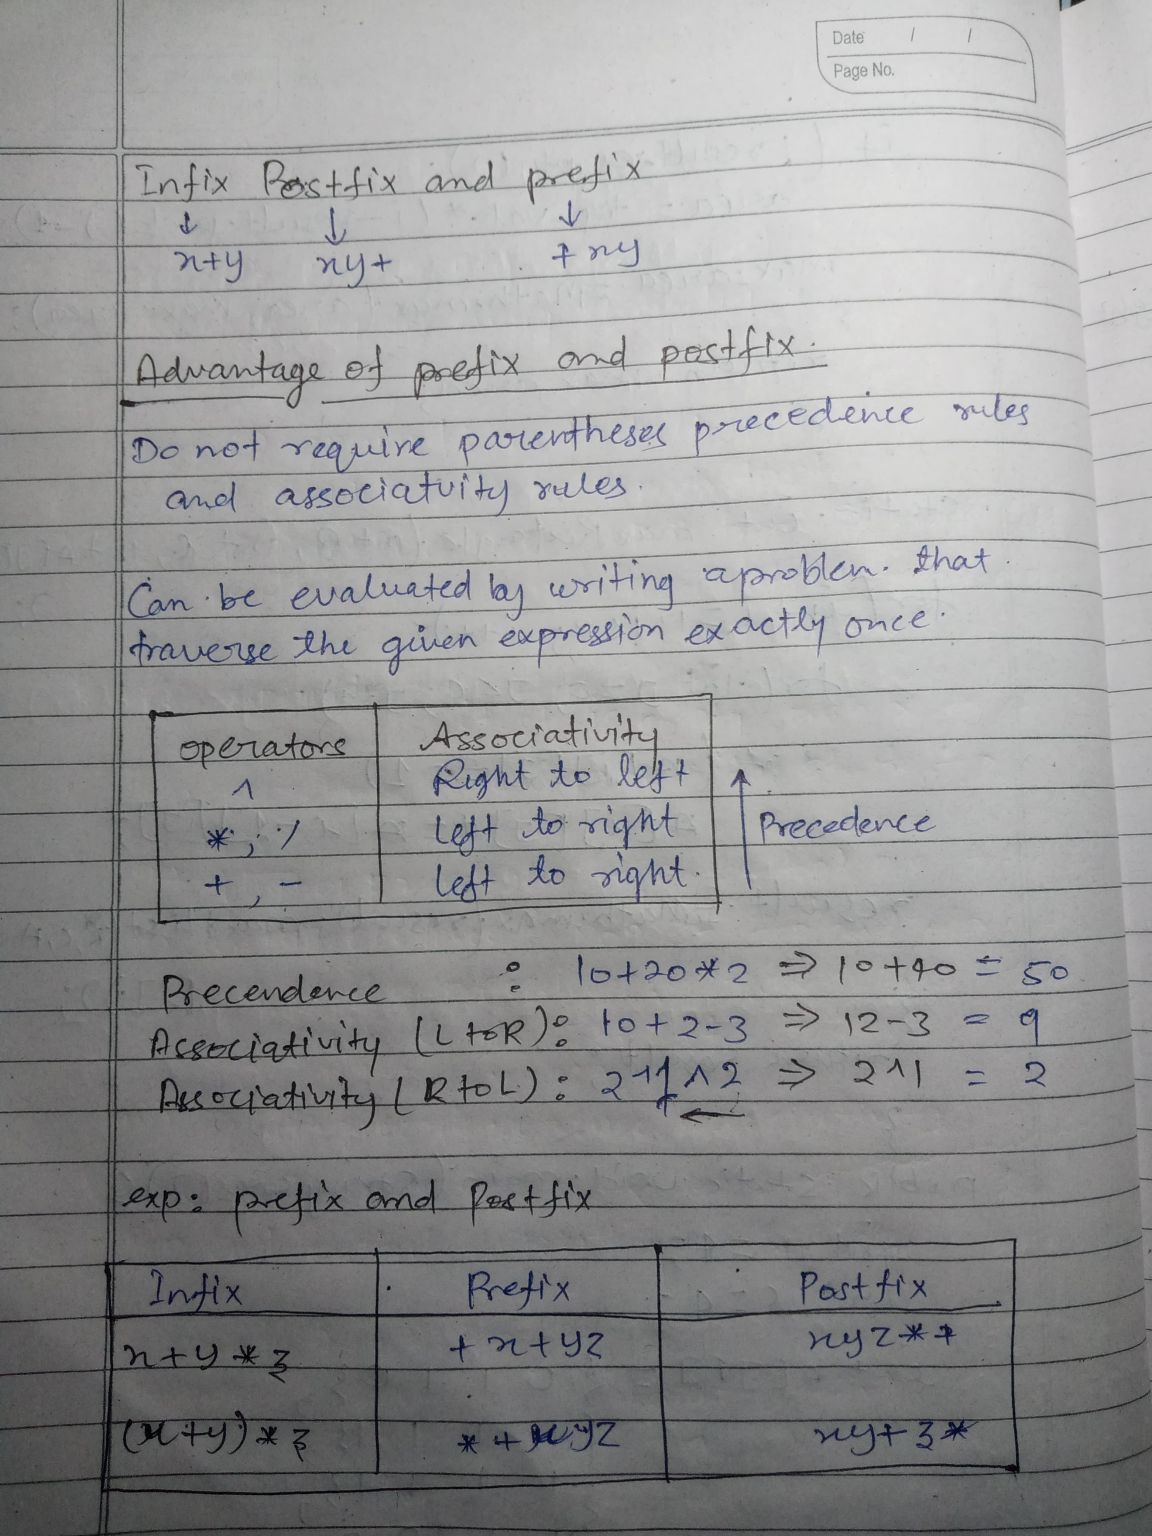 Date / /
Page No.
Infix Postfix and prefix
↓ ↓ ↓
x+y xy+ +xy
Advantage of prefix and postfix.
Do not require parentheses precedence rules
and associatvity rules.
Can be evaluated by writing a problem. that
traverse the given expression exactly once.
operators Associativity
^ Right to left
*, / left to right Precedence
+, - left to right.
Precendence : 10+20*2 ⇒ 10+40 = 50
Associativity (L to R): 10+2-3 ⇒ 12-3 = 9
Associativity (R to L): 2^1^2 ⇒ 2^1 = 2
exp: prefix and Postfix
Infix Prefix Postfix
x+y*z +x+yz xyz*+
(x+y)*z *+xyz xy+z*